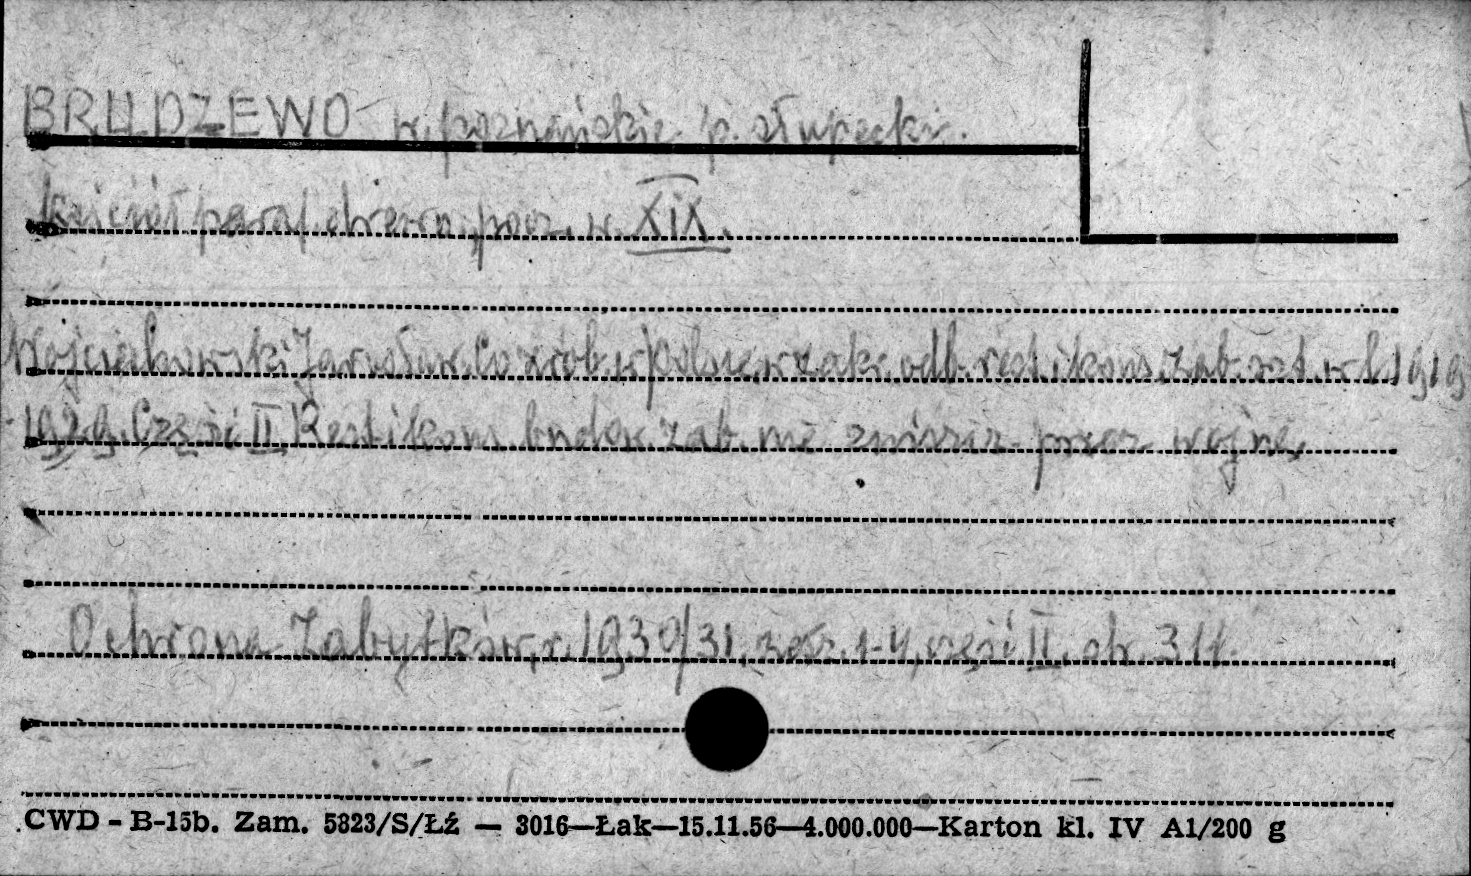 BRUDZEWO w. poznańskie p. słupecki.
Kościół paraf. drewn. pocz. w. XIX.
Wojciechowski Jarosław. Co zrob. w Polsce w zakr. odb. rest. i kons. zab. szt. w l. 1919
1929. Część II Rest. i kons. budow. zab. nie zniszcz. przez wojnę.
Ochrona Zabytków, r. 1930/31, zesz. 1-4, część II, str. 311.
CWD - B-15b. Zam. 5823/S/Łź — 3016—Łak—15.11.56—4.000.000—Karton kl. IV A1/200 g